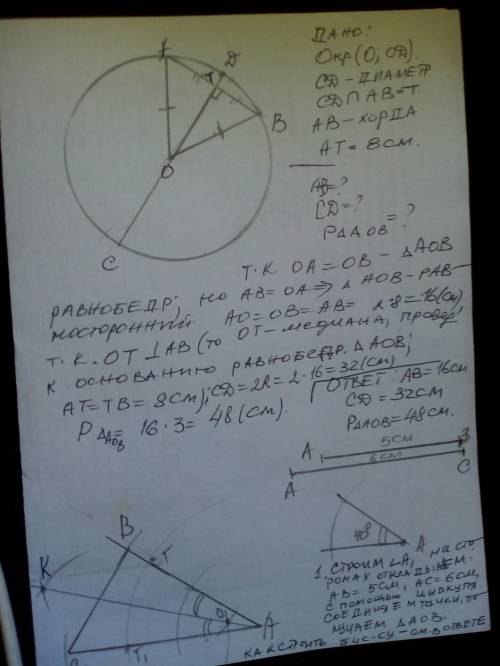 ДАНО:
Окр(О; ОД).
CД - ДИАМЕТР
CД ∩ AB = T.
AB - ХОРДА
AT = 8 см.
AB = ?
CД = ?
P∆AOB = ?
A
T
Д
B
O
C
Т.К. OA = OB - ∆AOB
РАВНОБЕДР; НО AB = OA ⇒ ∆ AOB - РАВ-
НОСТОРОННИЙ. AO = OB = AB = 2·8 = 16 (см)
Т.К. OT ⊥ AB (то OT - МЕДИАНА, провед
К ОСНОВАНИЮ РАВНОБЕДР. ∆ AOB;
AT = TB = 8 см); CД = 2R = 2·16 = 32 (см)
P∆AOB = 16·3 = 48 (см).
ОТВЕТ: AB = 16 см
CД = 32 см
P∆AOB = 48 см.
A 5 см B
A 6 см C
40° A
B
K
T
O
A
C
T1
1. СТРОИМ ∠A, на сто
РОНАХ ОТКЛАДЫВАЕМ.
AB = 5 см, AC = 6 см,
С ПОМОЩЬЮ ЦИРКУЛЯ.
СОЕДИНЯЕМ ТОЧКИ, ПО
ЛУЧАЕМ ∆AOB.
КАК СТРОИТЬ БИС-СУ - СМ. В ОТВЕТЕ